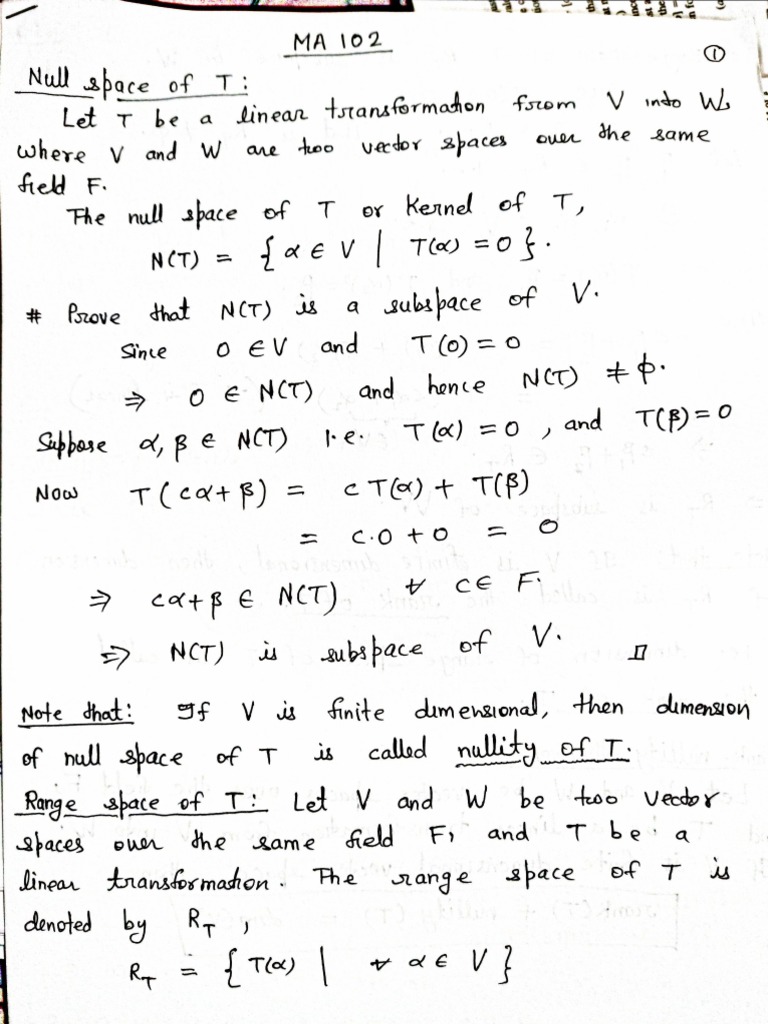 MA 102
①
Null space of T:
Let T be a linear transformation from V into W,
where V and W are two vector spaces over the same
field F.
The null space of T or Kernel of T,
N(T) = { α ∈ V | T(α) = 0 }.
# Prove that N(T) is a subspace of V.
Since 0 ∈ V and T(0) = 0
⇒ 0 ∈ N(T) and hence N(T) ≠ ϕ.
Suppose α, β ∈ N(T) i.e. T(α) = 0 , and T(β) = 0
Now T(cα + β) = c T(α) + T(β)
= c.0 + 0 = 0
⇒ cα + β ∈ N(T) ∀ c ∈ F.
⇒ N(T) is subspace of V.
Note that: If V is finite dimensional, then dimension
of null space of T is called nullity of T.
Range space of T: Let V and W be two vector
spaces over the same field F, and T be a
linear transformation. The range space of T is
denoted by R_T ,
R_T = { T(α) | ∀ α ∈ V }